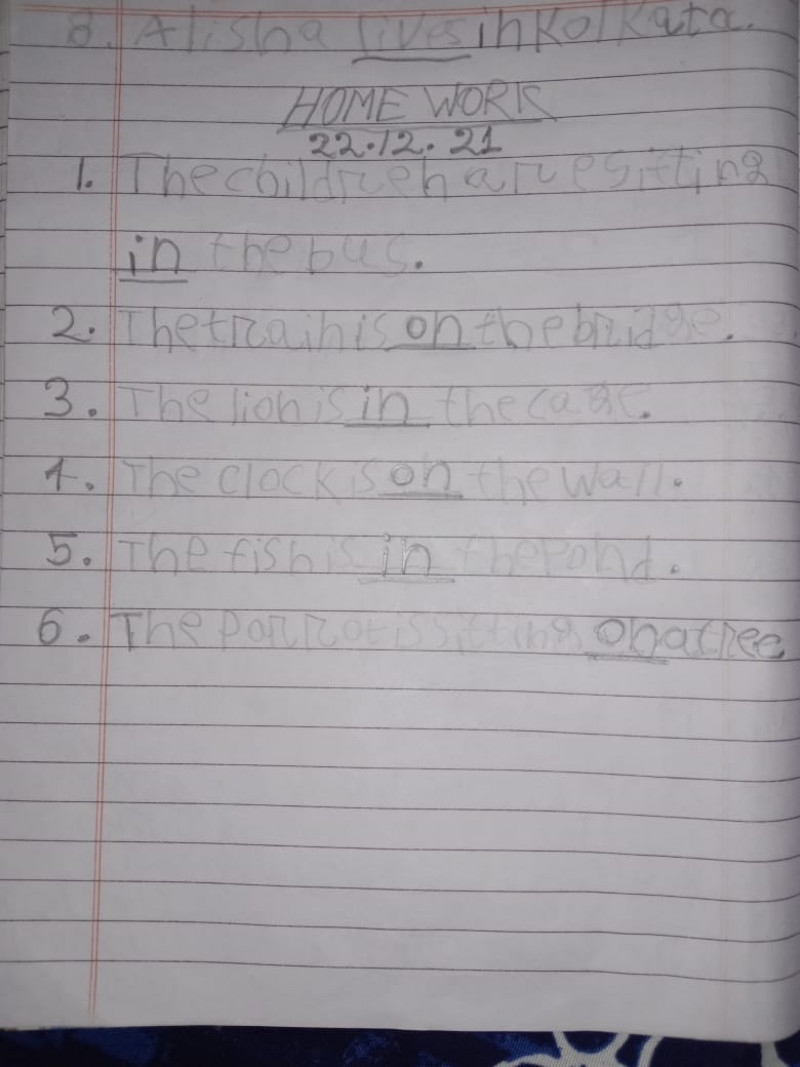 8. Alisha lives in Kolkata.
HOME WORK
22.12.21
1. The children are sitting
in the bus.
2. The train is on the bridge.
3. The lion is in the cage.
4. The clock is on the wall.
5. The fish is in the pond.
6. The parrot is sitting on a tree